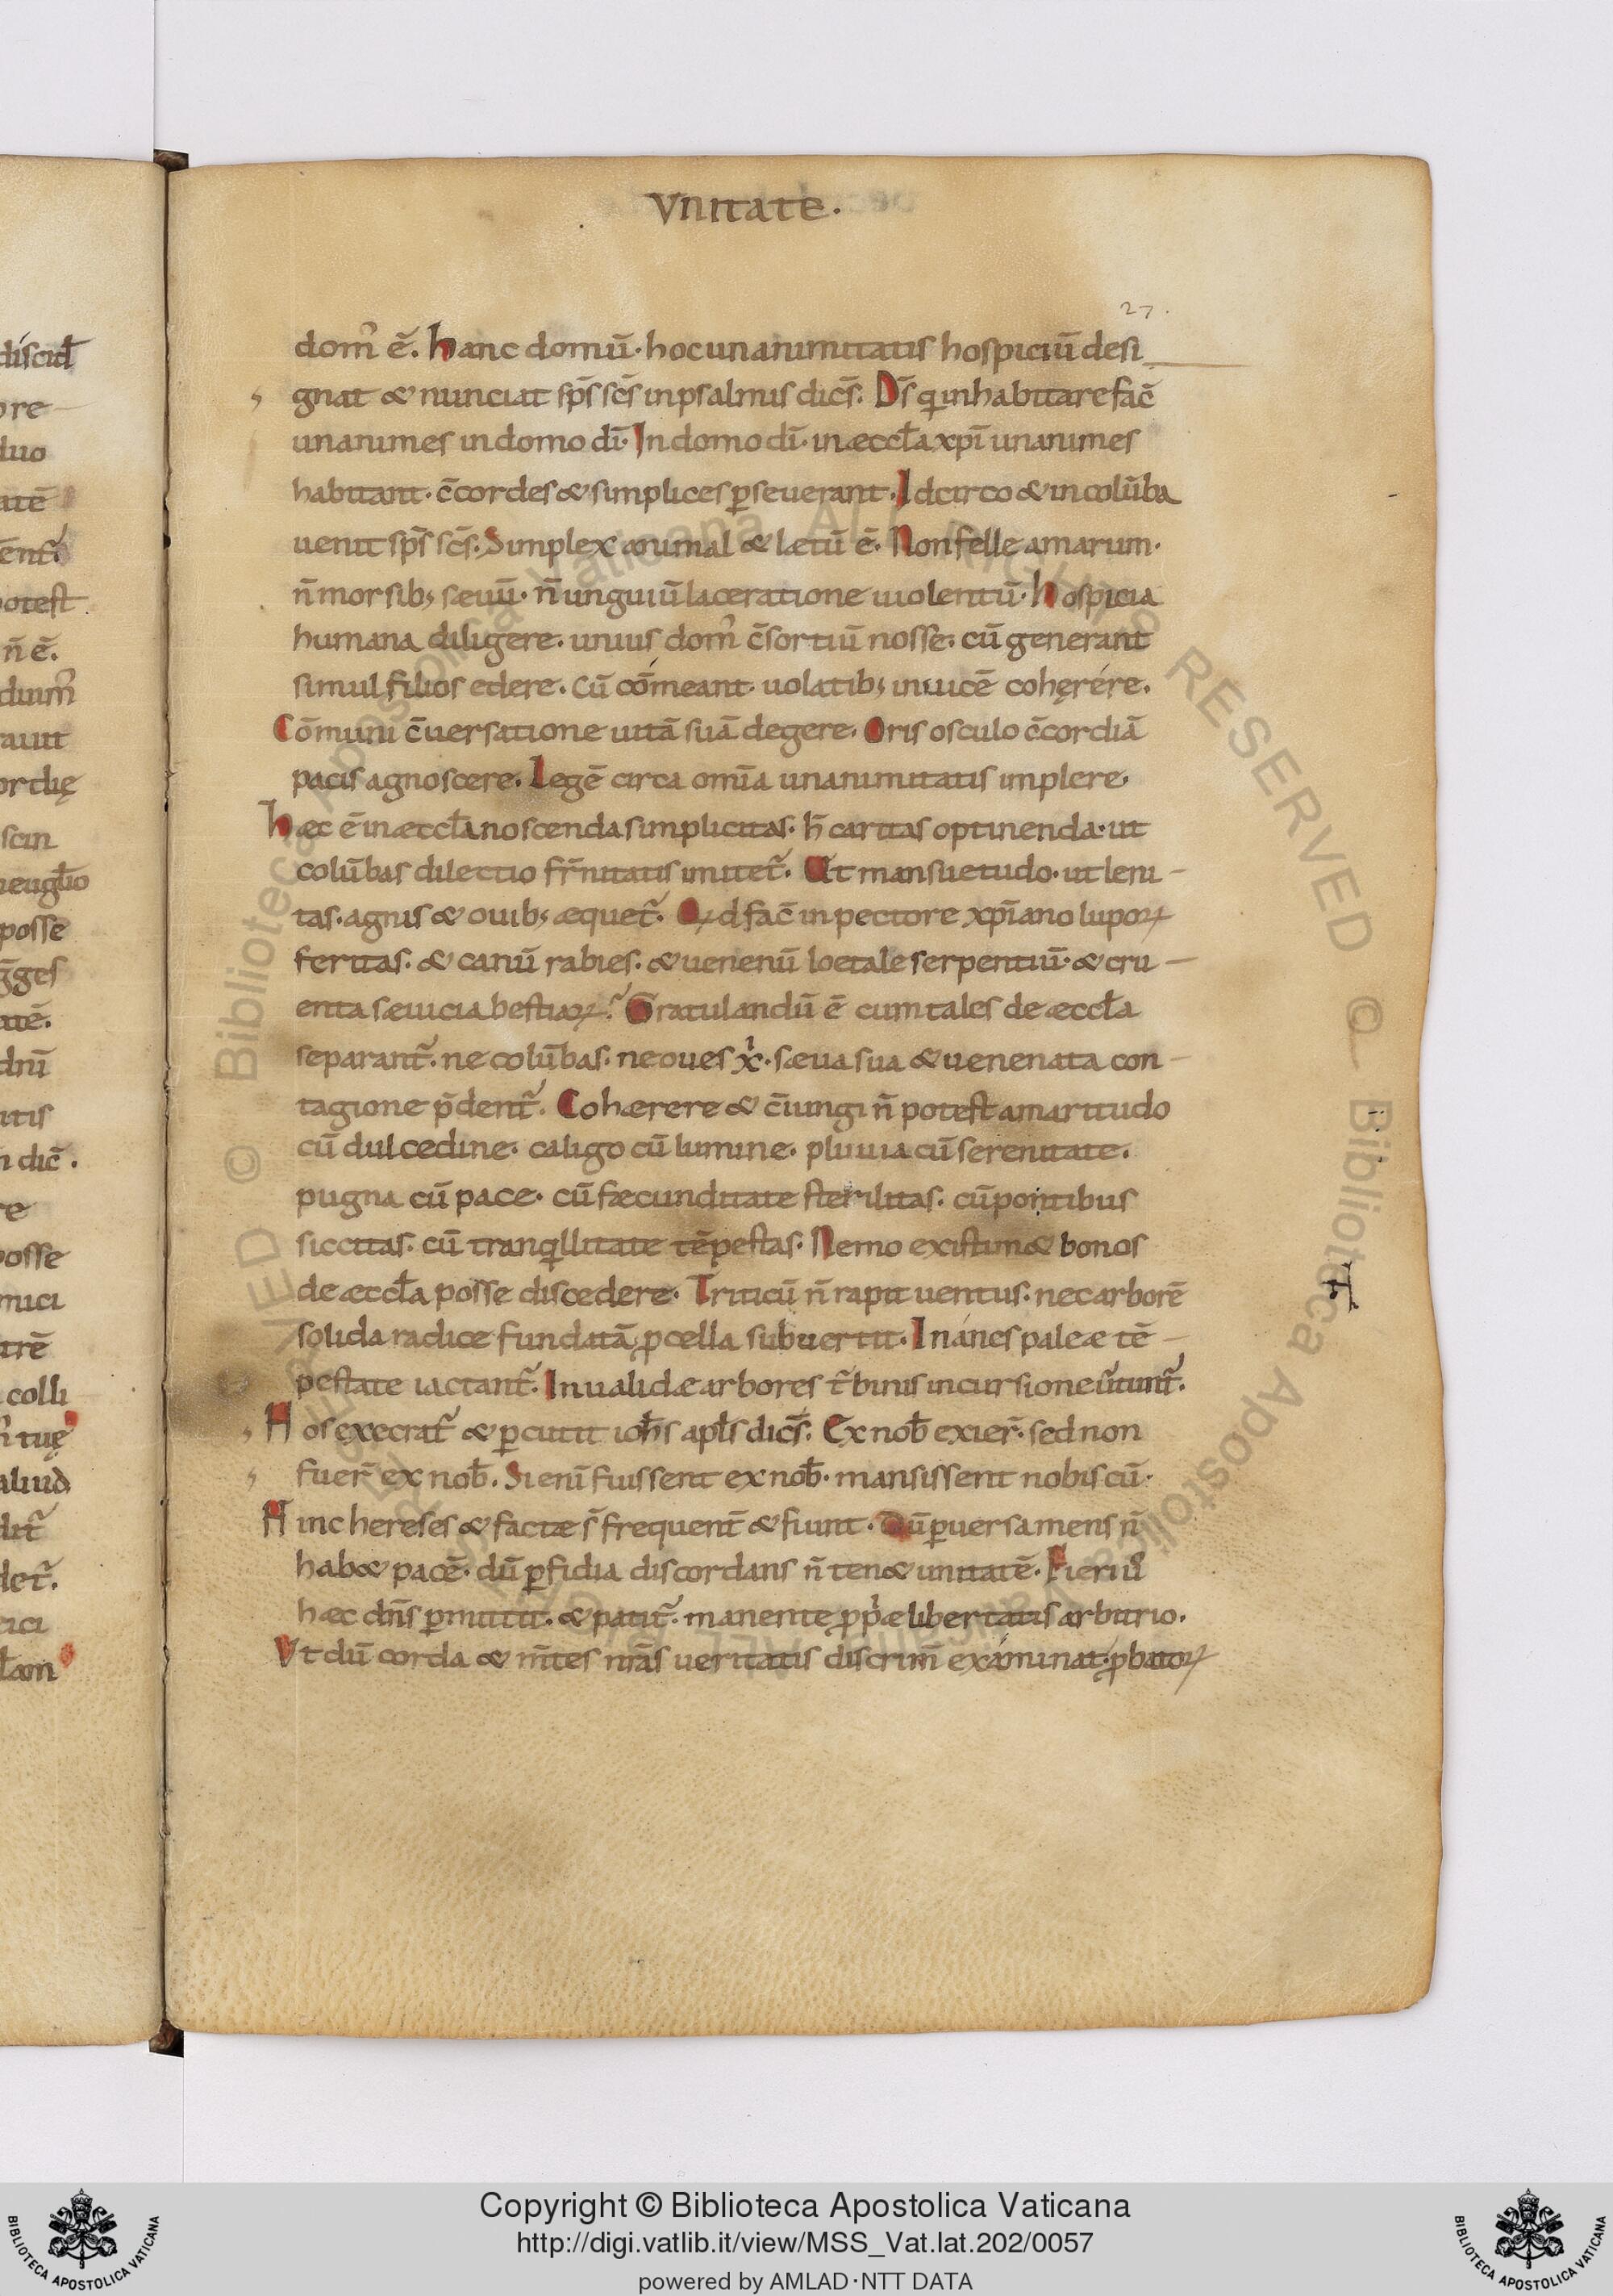 Vnitate.
27.
dom᾽ ē. hanc domū· hoc unanimitatis hospiciū desi
gnat & nunciat sp̄s sc̄s in psalmis dic̄s. Ds̄ qui inhabitare fac̄
unanimes in domo dī· In domo dī· in æccƚa xp̄i unanimes
habitant· c̄cordes & simplices ꝑseuerant. Idcirco & in colūba
uenit sp̄s sc̄s. Simplex animal & lætū ē. Non felle amarum·
n̄ morsib; sæuū· n̄ unguiū laceratione uiolentū· hospicia
humana diligere. unius dom᾽ c̄sortiū nosse. cū generant
simul filios edere. Cū cōmeant· uolatib; inuicē cohęrére.
Cōmuni c̄uersatione uitā suā degere. Oris osculo c̄cordiā
pacis agnoscere. Legē circa omīa unanimitatis implere.
hæc ē in æccƚa noscenda simplicitas. h̄ caritas optinenda. ut
colūbas dilectio fr̄nitatis imitet᷑. Ut mansuetudo. ut leni-
tas. agnis & ouib; æquet᷑. Qd fac̄ in pectore xp̄iano lupoꝝ
feritas. & canū rabies. & uenenū loetale serpentiū· & cru-
enta sæuicia bestiaꝝ? Gratulandū ē cum tales de æccƚa
separant᷑. ne colūbas. ne oues xi. sæua sua & uenenata con-
tagione p̄dent᷑. Cohærere & c̄iungi n̄ potest amaritudo
cū dulcedine. caligo cū lumine. pluuia cū serenitate.
pugna cū pace. cū fæcunditate sterilitas. cū pontibus
siccitas. cū tranqillitate tēpestas. Nemo existim& bonos
de æccƚa posse discedere. Triticū n̄ rapit uentus. nec arborē
solida radice fundatā ꝓcella subuertit. Inánes paleæ tē-
pestate iactant᷑. Inualidæ arbores t᷑binis incursione u᷑tunt᷑.
Hos execrat᷑ & ꝑcutit ioħs apƚs dic̄s. Ex nob̄ exier̄. sed non
fuer̄ ex nob̄. Si enī fuissent ex nob̄. mansissent nobiscū.
Hinc hereses & factæ s̄ frequent̄ & fiunt. Dū ꝑuersa mens n̄
hab& pacē. dū ꝑfidia discordans n̄ ten& unitatē. Fieri u᷑
hæc dn̄s ꝑmittit. & patit᷑. manente ꝓp̄æ libertatis arbitrio.
Vt dū corda & m̄tes nr̄as ueritatis discrim̄ exáminat. ꝓbatoꝝ
Copyright © Biblioteca Apostolica Vaticana
http://digi.vatlib.it/view/MSS_Vat.lat.202/0057
powered by AMLAD·NTT DATA
BIBLIOTECA APOSTOLICA VATICANA
BIBLIOTECA APOSTOLICA VATICANA